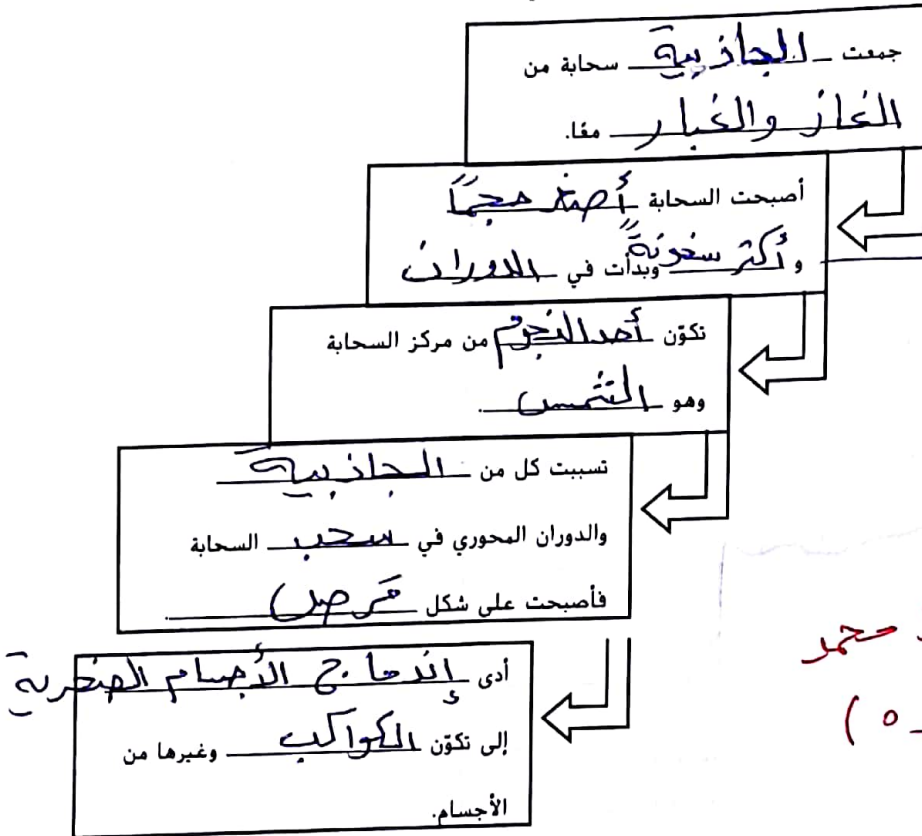 جمعت الجاذبية سحابة من
الغاز والغبار معًا.
أصبحت السحابة أصغر حجمًا
و أكثر سخونةً وبدأت في الدوران
تكوّن أحد النجوم من مركز السحابة
وهو الشمس.
تسببت كل من الجاذبية
والدوران المحوري في سحب السحابة
فأصبحت على شكل قرص.
أدى إندماج الأجسام الصخرية
إلى تكوّن الكواكب وغيرها من
الأجسام.
محمد